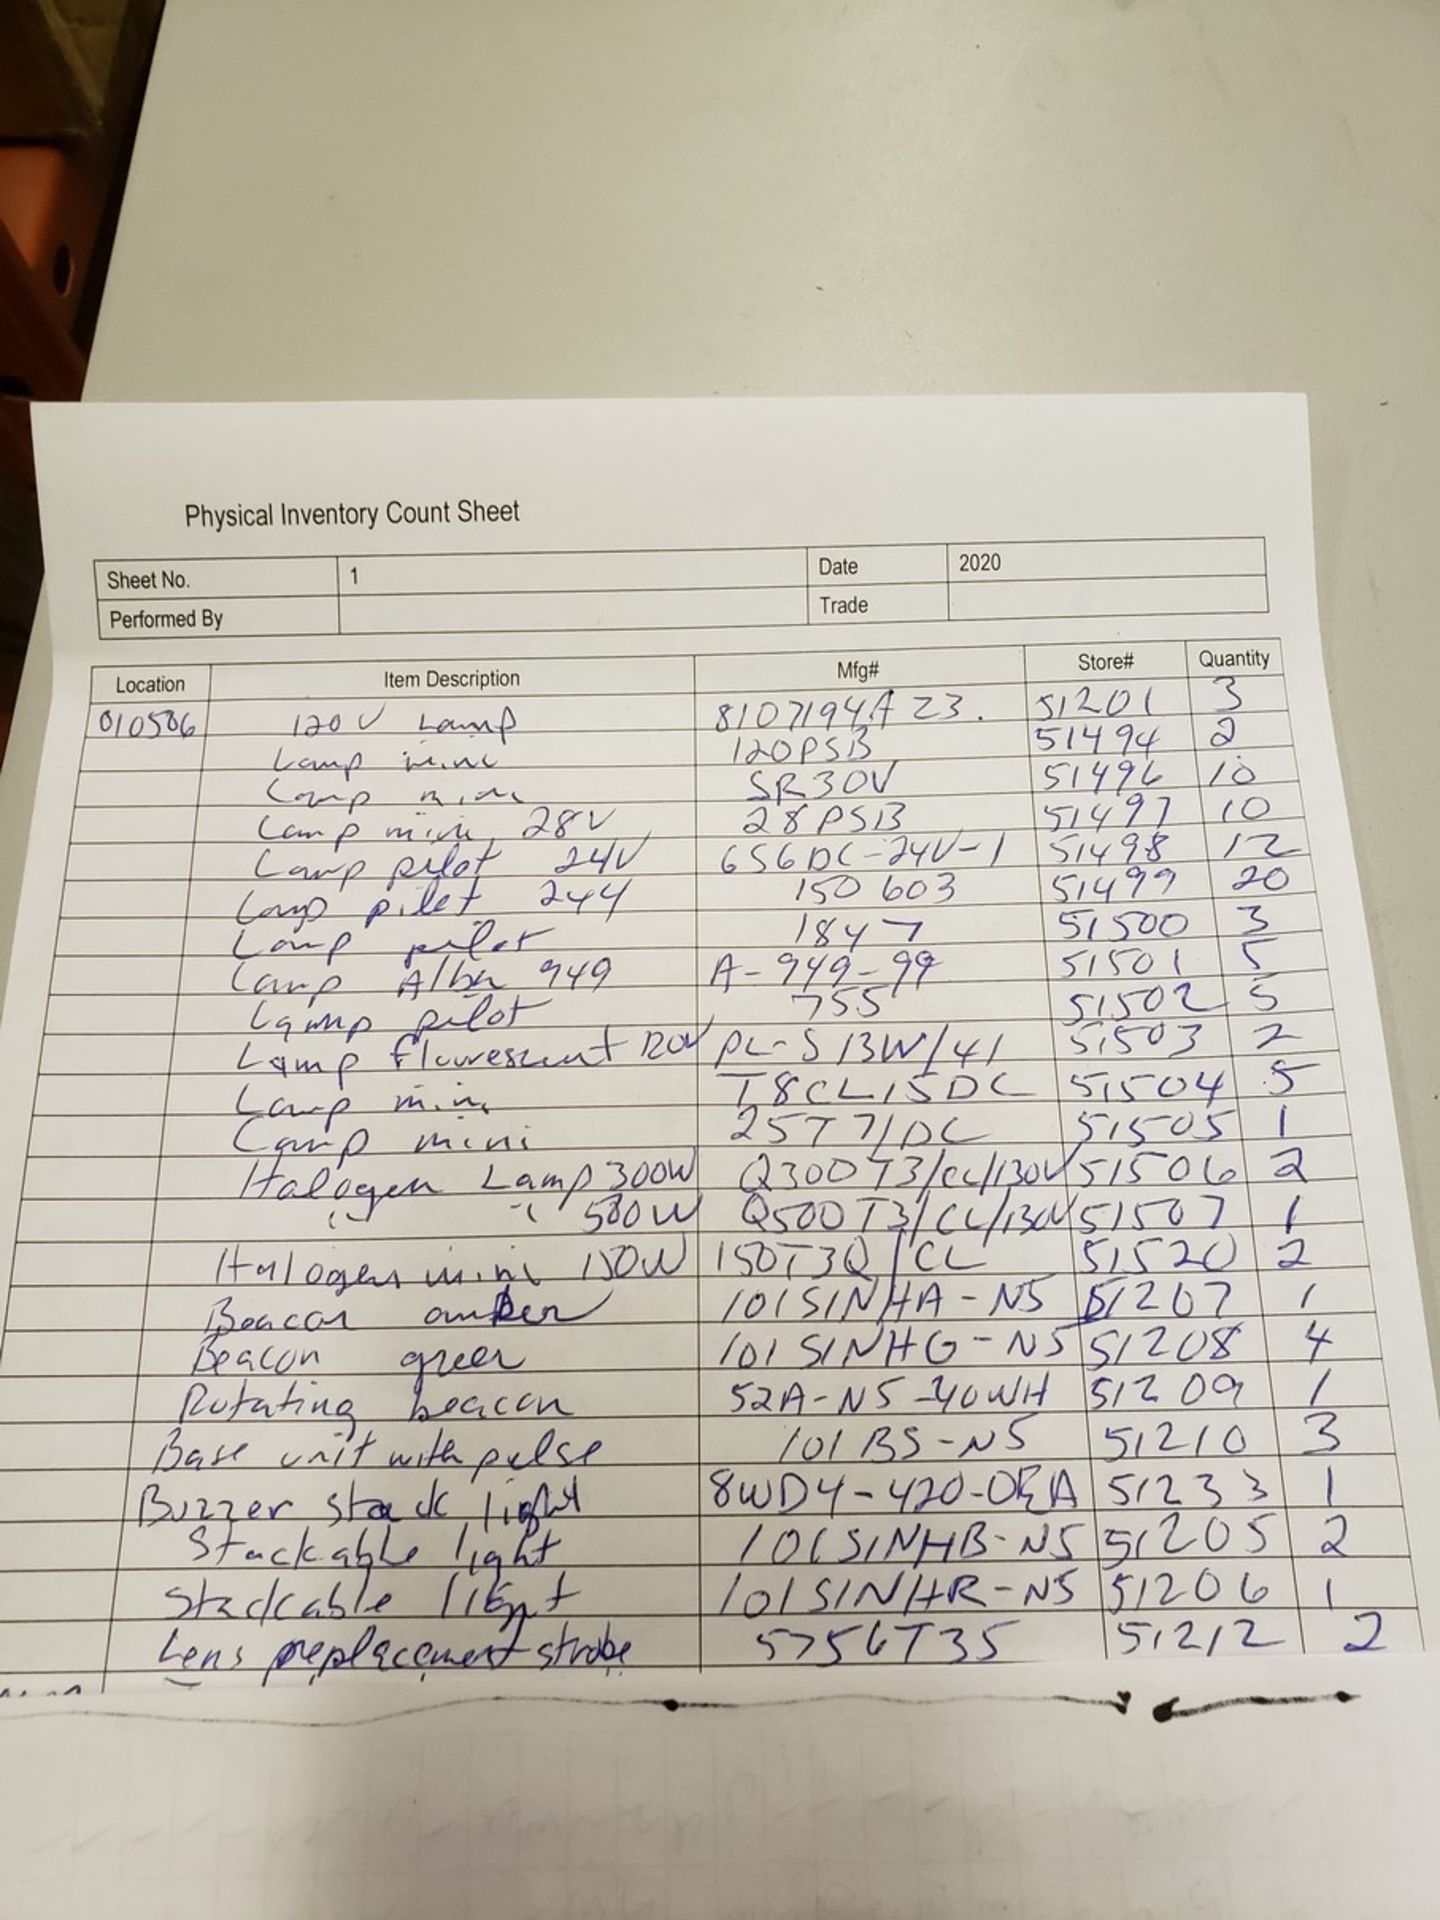 Physical Inventory Count Sheet
Sheet No. 1 Date 2020
Performed By Trade
Location Item Description Mfg# Store# Quantity
010506 120V Lamp 8107194A Z3. 51201 3
Lamp mini 120PSB 51494 2
Lamp mini SR30V 51496 10
Lamp mini 28V 28PSB 51497 10
Lamp pilot 24V 656DC-24V-1 51498 12
Lamp pilot 244 150 603 51499 20
Lamp pilot 1847 51500 3
Lamp 949 A-949-99 51501 5
Lamp pilot 755 51502 5
Lamp flourescent 120V PL-S 13W/41 51503 2
Lamp mini T8CL15DC 51504 5
Lamp mini 25T7/DC 51505 1
Halogen Lamp 300W Q300T3/CL/130V 51506 2
" " 500W Q500T3/CL/130V 51507 1
Halogen mini 150W 150T3Q/CL 51520 2
Beacon amber 101SINHA-N5 51207 1
Beacon green 101SINHG-N5 51208 4
Rotating beacon 52A-N5-40WH 51209 1
Base unit with pulse 101BS-N5 51210 3
Buzzer stack light 8WD4-420-0EA 51233 1
Stackable light 101SINHB-N5 51205 2
Stackable light 101SINHR-N5 51206 1
Lens replacement strobe 5756T35 51212 2